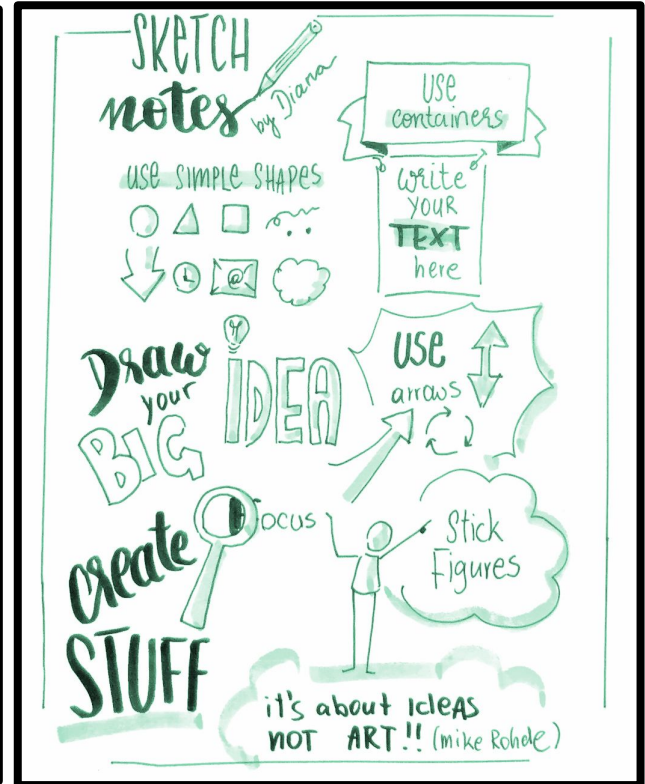 SKETCH
notes
by Diana
USE
containers
USE SIMPLE SHAPES
write
YOUR
TEXT
here
@
Draw
your
BIG
IDEA
USE
arrows
Focus
create
STUFF
Stick
Figures
it's about IdeAS
NOT ART!! (mike Rohde)